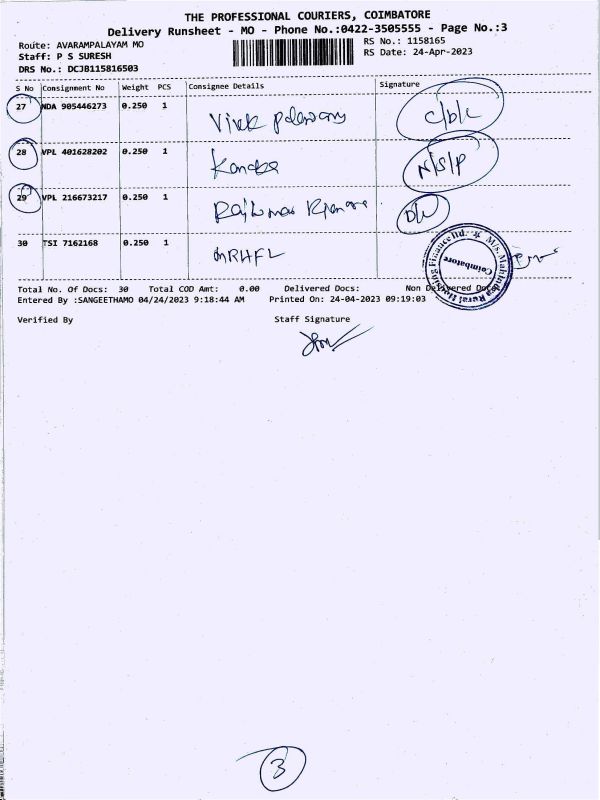 THE PROFESSIONAL COURIERS, COIMBATORE
Delivery Runsheet - MO - Phone No.:0422-3505555 - Page No.:3
Route: AVARAMPALAYAM MO
Staff: P S SURESH
DRS No.: DCJB115816503
RS No.: 1158165
RS Date: 24-Apr-2023
S No Consignment No Weight PCS Consignee Details Signature
27 NDA 905446273 0.250 1 Vivek
28 VPL 401628202 0.250 1 N/S/P
29 VPL 216673217 0.250 1 Rajkumar
30 TSI 7162168 0.250 1 MRHFL
M/s. Mahindra Rural Housing Finance ltd. ★
Coimbatore
Total No. Of Docs: 30 Total COD Amt: 0.00 Delivered Docs: Non Delivered Docs
Entered By :SANGEETHAMO 04/24/2023 9:18:44 AM Printed On: 24-04-2023 09:19:03
Verified By Staff Signature
3